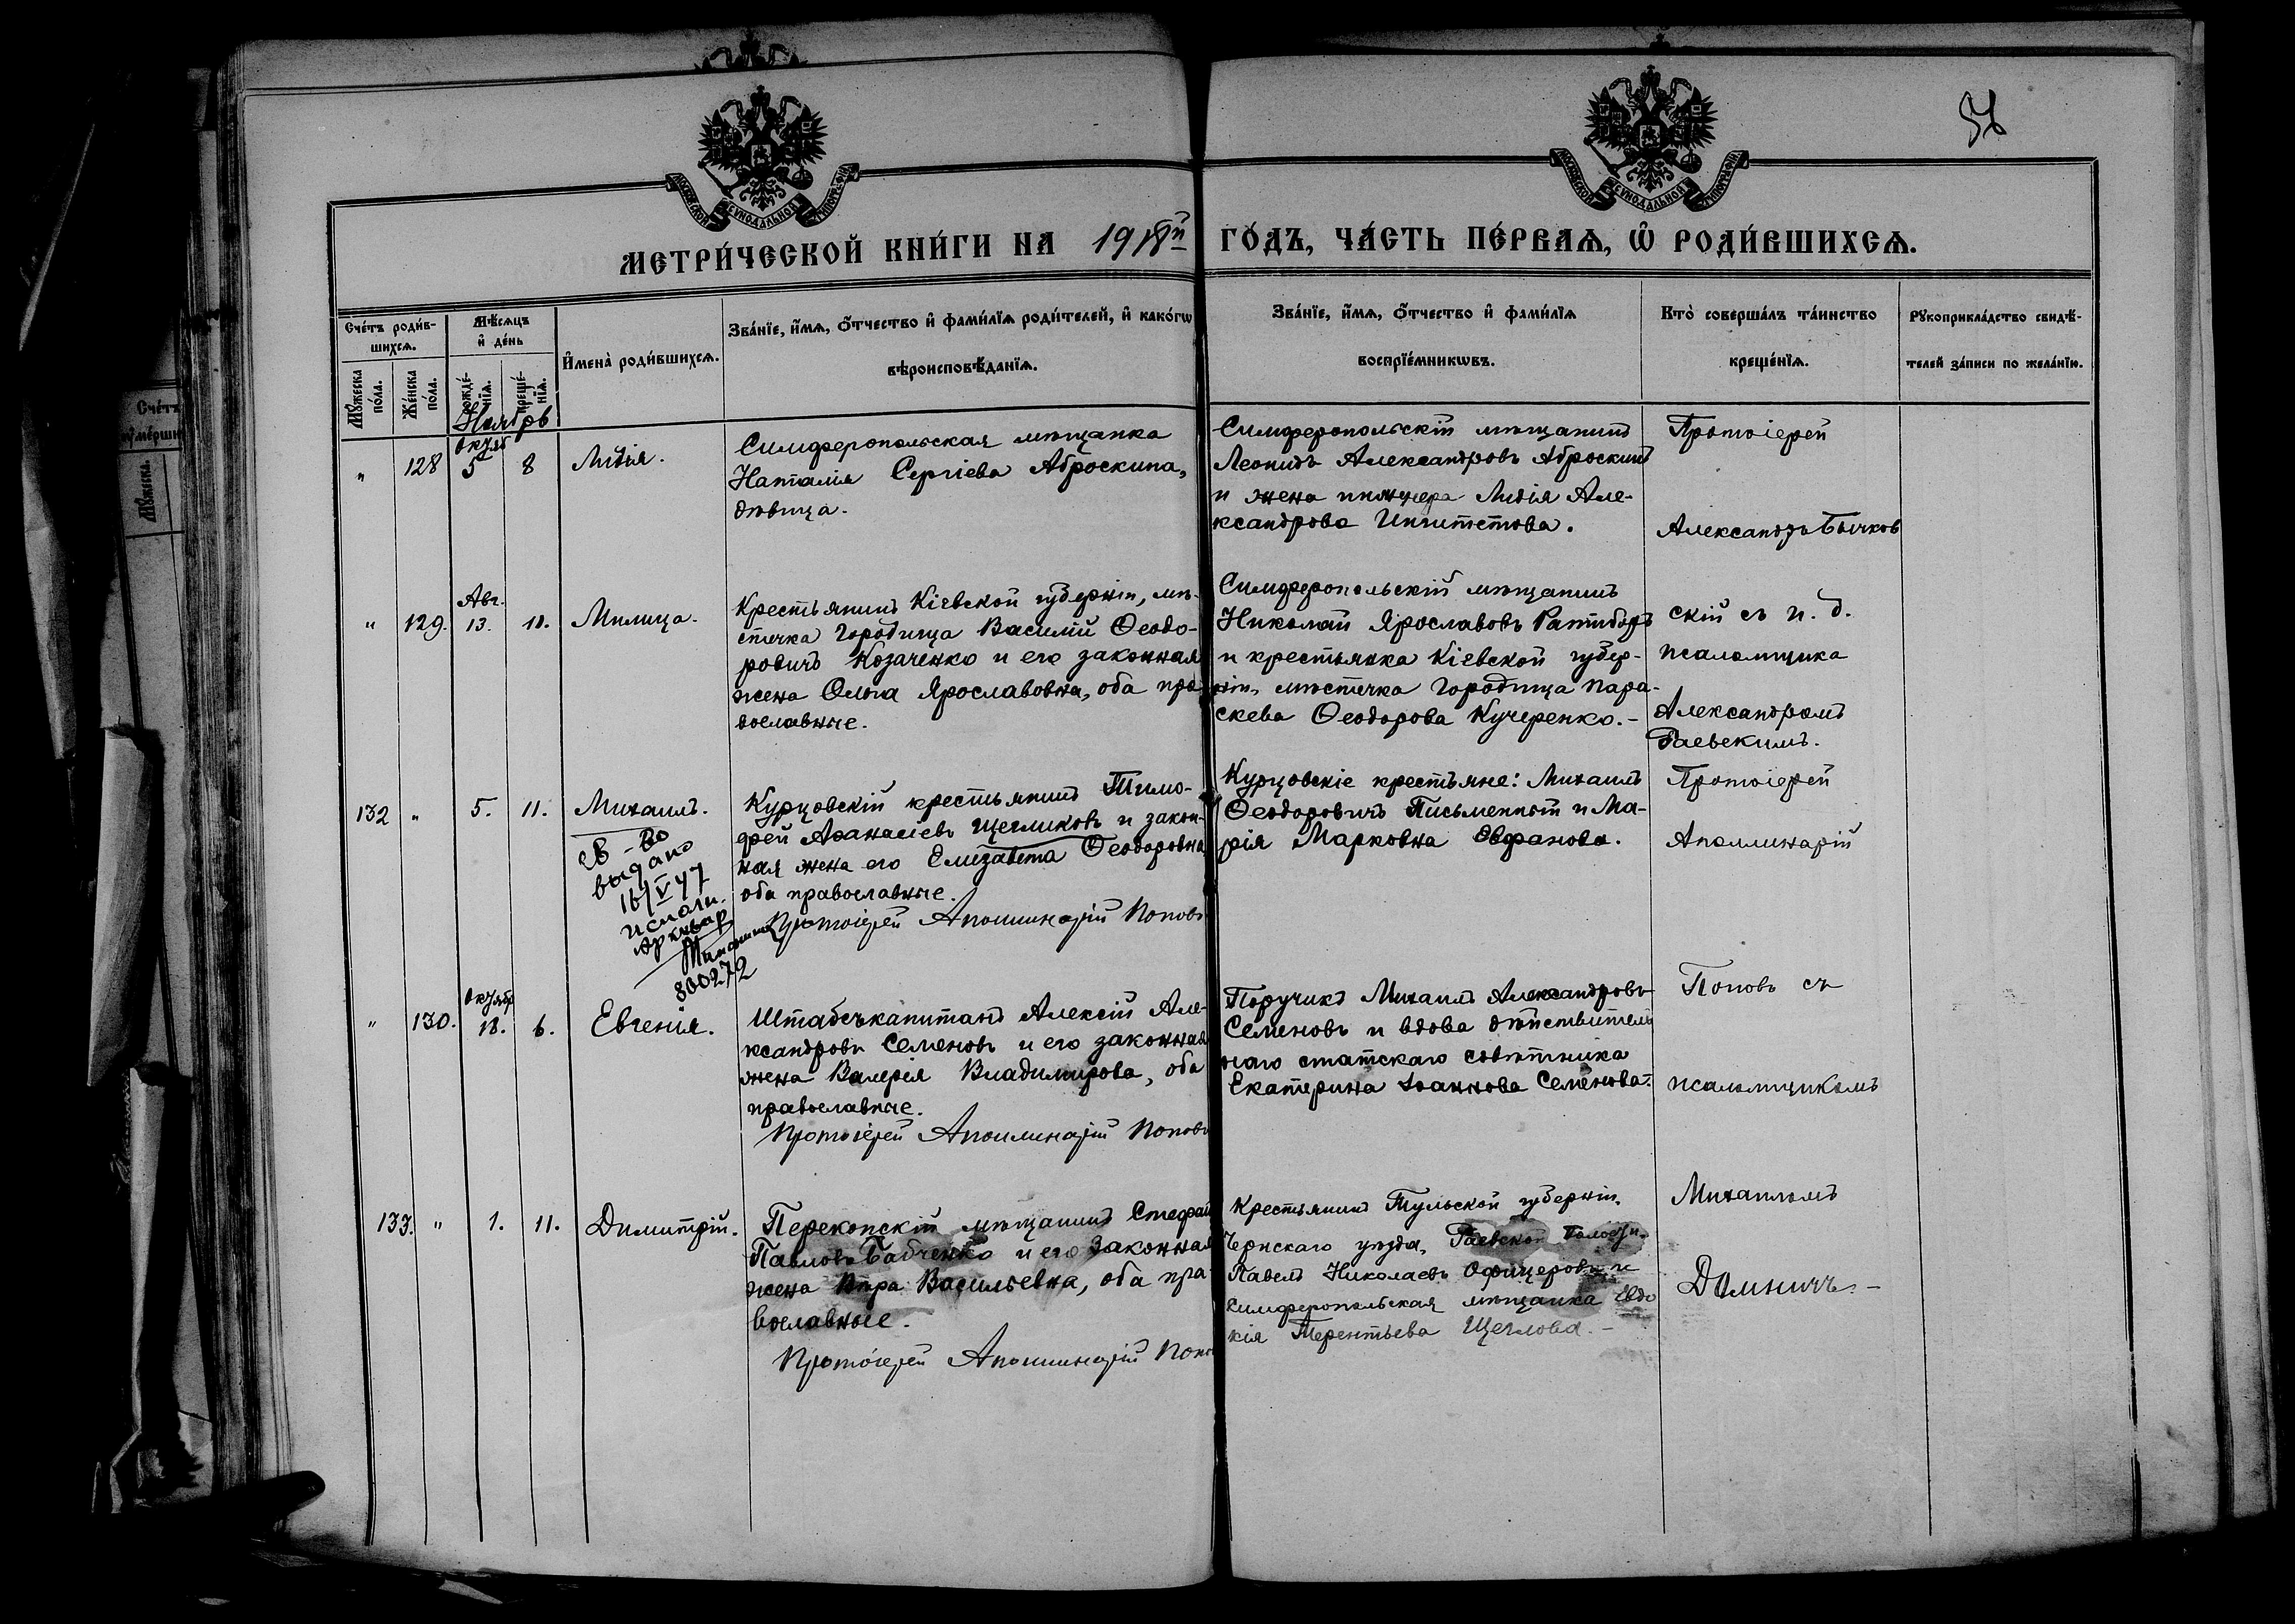 54
МОСКОВСКОЙ СѴНОДАЛЬНОЙ ТИПОГРАФІИ
МОСКОВСКОЙ СѴНОДАЛЬНОЙ ТИПОГРАФІИ
МЕТРИ́ЧЕСКОЙ КНИ́ГИ НА 1918й ГО́ДЪ, ЧА́СТЬ ПЕ́РВАѦ, Ѡ҆ РОДИ́ВШИХСѦ.
Сче́тъ роди́в-
шихсѧ.
Мꙋ́жеска по́ла.
Же́нска по́ла.
Мѣ́сѧцъ
и҆ де́нь
рожде́-нїѧ.
креще́-нїѧ.
И҆мена̀ роди́вшихсѧ.
Зва́нїе, и҆́мѧ, ѻ҆́тчество и҆ фами́лїѧ роди́телей, и҆ како́гѡ
вѣроисповѣ́данїѧ.
Зва́нїе, и҆́мѧ, ѻ҆́тчество и҆ фами́лїѧ
воспрїе́мникѡвъ.
Кто̀ соверша́лъ та́инство
креще́нїѧ.
Рꙋкоприкла́дство свидѣ́-
телей за́писи по жела́нїю.
Ноябрь
"
128
Октяб
5
8
Лидія.
Симферопольская мѣщанка
Наталія Сергіева Аброскина,
дѣвица.
Симферопольскій мѣщанинъ
Леонидъ Александровъ Аброскинъ
и жена инженера Лидія Але-
ксандрова
Протоіерей
Александръ Бычков
"
129.
Авг.
13.
11.
Милица.
Крестьянинъ Кіевской губерніи, мѣ-
стечка Городища Василій Ѳеодо-
ровичъ Козаченко и его законная
жена Ольга Ярославовна, оба пра-
вославные.
Симферопольскій мѣщанинъ
Николай Ярославовъ Ратиборъ
и крестьянка Кіевской губер-
ніи, мѣстечка Городища Пара-
скева Ѳеодорова Кучеренко.-
скій съ и. д.
псаломщика
Александромъ
Раевскимъ.
132
"
5.
11.
Михаилъ.
Св-во
выдано
16/V 47
800272
Курцовскій крестьянинъ Тимо-
фей Аѳанасіевъ Щегликовъ и закон-
ная жена его Елизавета Ѳеодоровна
оба православные.
Протоіерей Аполлинарій Поповъ
Курцовскіе крестьяне: Михаилъ
Ѳеодоровичъ Письменный и Ма-
рія Марковна Евфанова.
Протоіерей
Аполлинарій
"
130.
Октябр
18.
6.
Евгенія.
Штабсъкапитанъ Алексій Але-
ксандровъ Семеновъ и его законная
жена Валерія Владимирова, оба
православные.
Протоіерей Аполлинарій Поповъ
Поручикъ Михаилъ Александровъ
Семеновъ и вдова дѣйствитель
наго статскаго совѣтника
Екатерина Іоаннова Семенова.
Поповъ съ
псаломщикомъ
133.
"
1.
11.
Димитрій.
Перекопскій мѣщанинъ Стефан
Павловъ Бабченко и его законная
жена Вѣра Васильевна, оба пра-
вославные.
Протоіерей Аполлинарій Попо
Крестьянинъ Тульской губерніи.
Чернскаго уѣзда, Раевской
Павелъ Николаевъ Офицеровъ и
симферопольская мѣщанка Евдо
кія Терентьева Щеглова.-
Михаиломъ
Домничъ.-